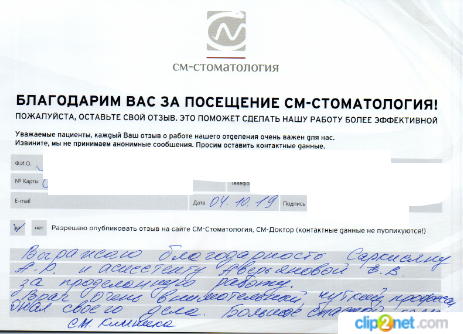 СМ-СТОМАТОЛОГИЯ
БЛАГОДАРИМ ВАС ЗА ПОСЕЩЕНИЕ СМ-СТОМАТОЛОГИЯ!
ПОЖАЛУЙСТА, ОСТАВЬТЕ СВОЙ ОТЗЫВ. ЭТО ПОМОЖЕТ СДЕЛАТЬ НАШУ РАБОТУ БОЛЕЕ ЭФФЕКТИВНОЙ
Уважаемые пациенты, каждый Ваш отзыв о работе нашего отделения очень важен для нас.
Извините, мы не принимаем анонимные сообщения. Просим оставить контактные данные.
Ф.И.О.
№ Карты
E-mail Дата 04.10.19 Подпись
нет Разрешаю опубликовать отзыв на сайте СМ-Стоматология, СМ-Доктор (контактные данные не публикуются!)
Выражаю благодарность Саркисяну
А.Р. и ассистенту Аверьяновой Е.В
за проделанную работу.
Врач очень внимательный, чуткий,
своего дела. Большое
СМ. Клиника
clip2net.com